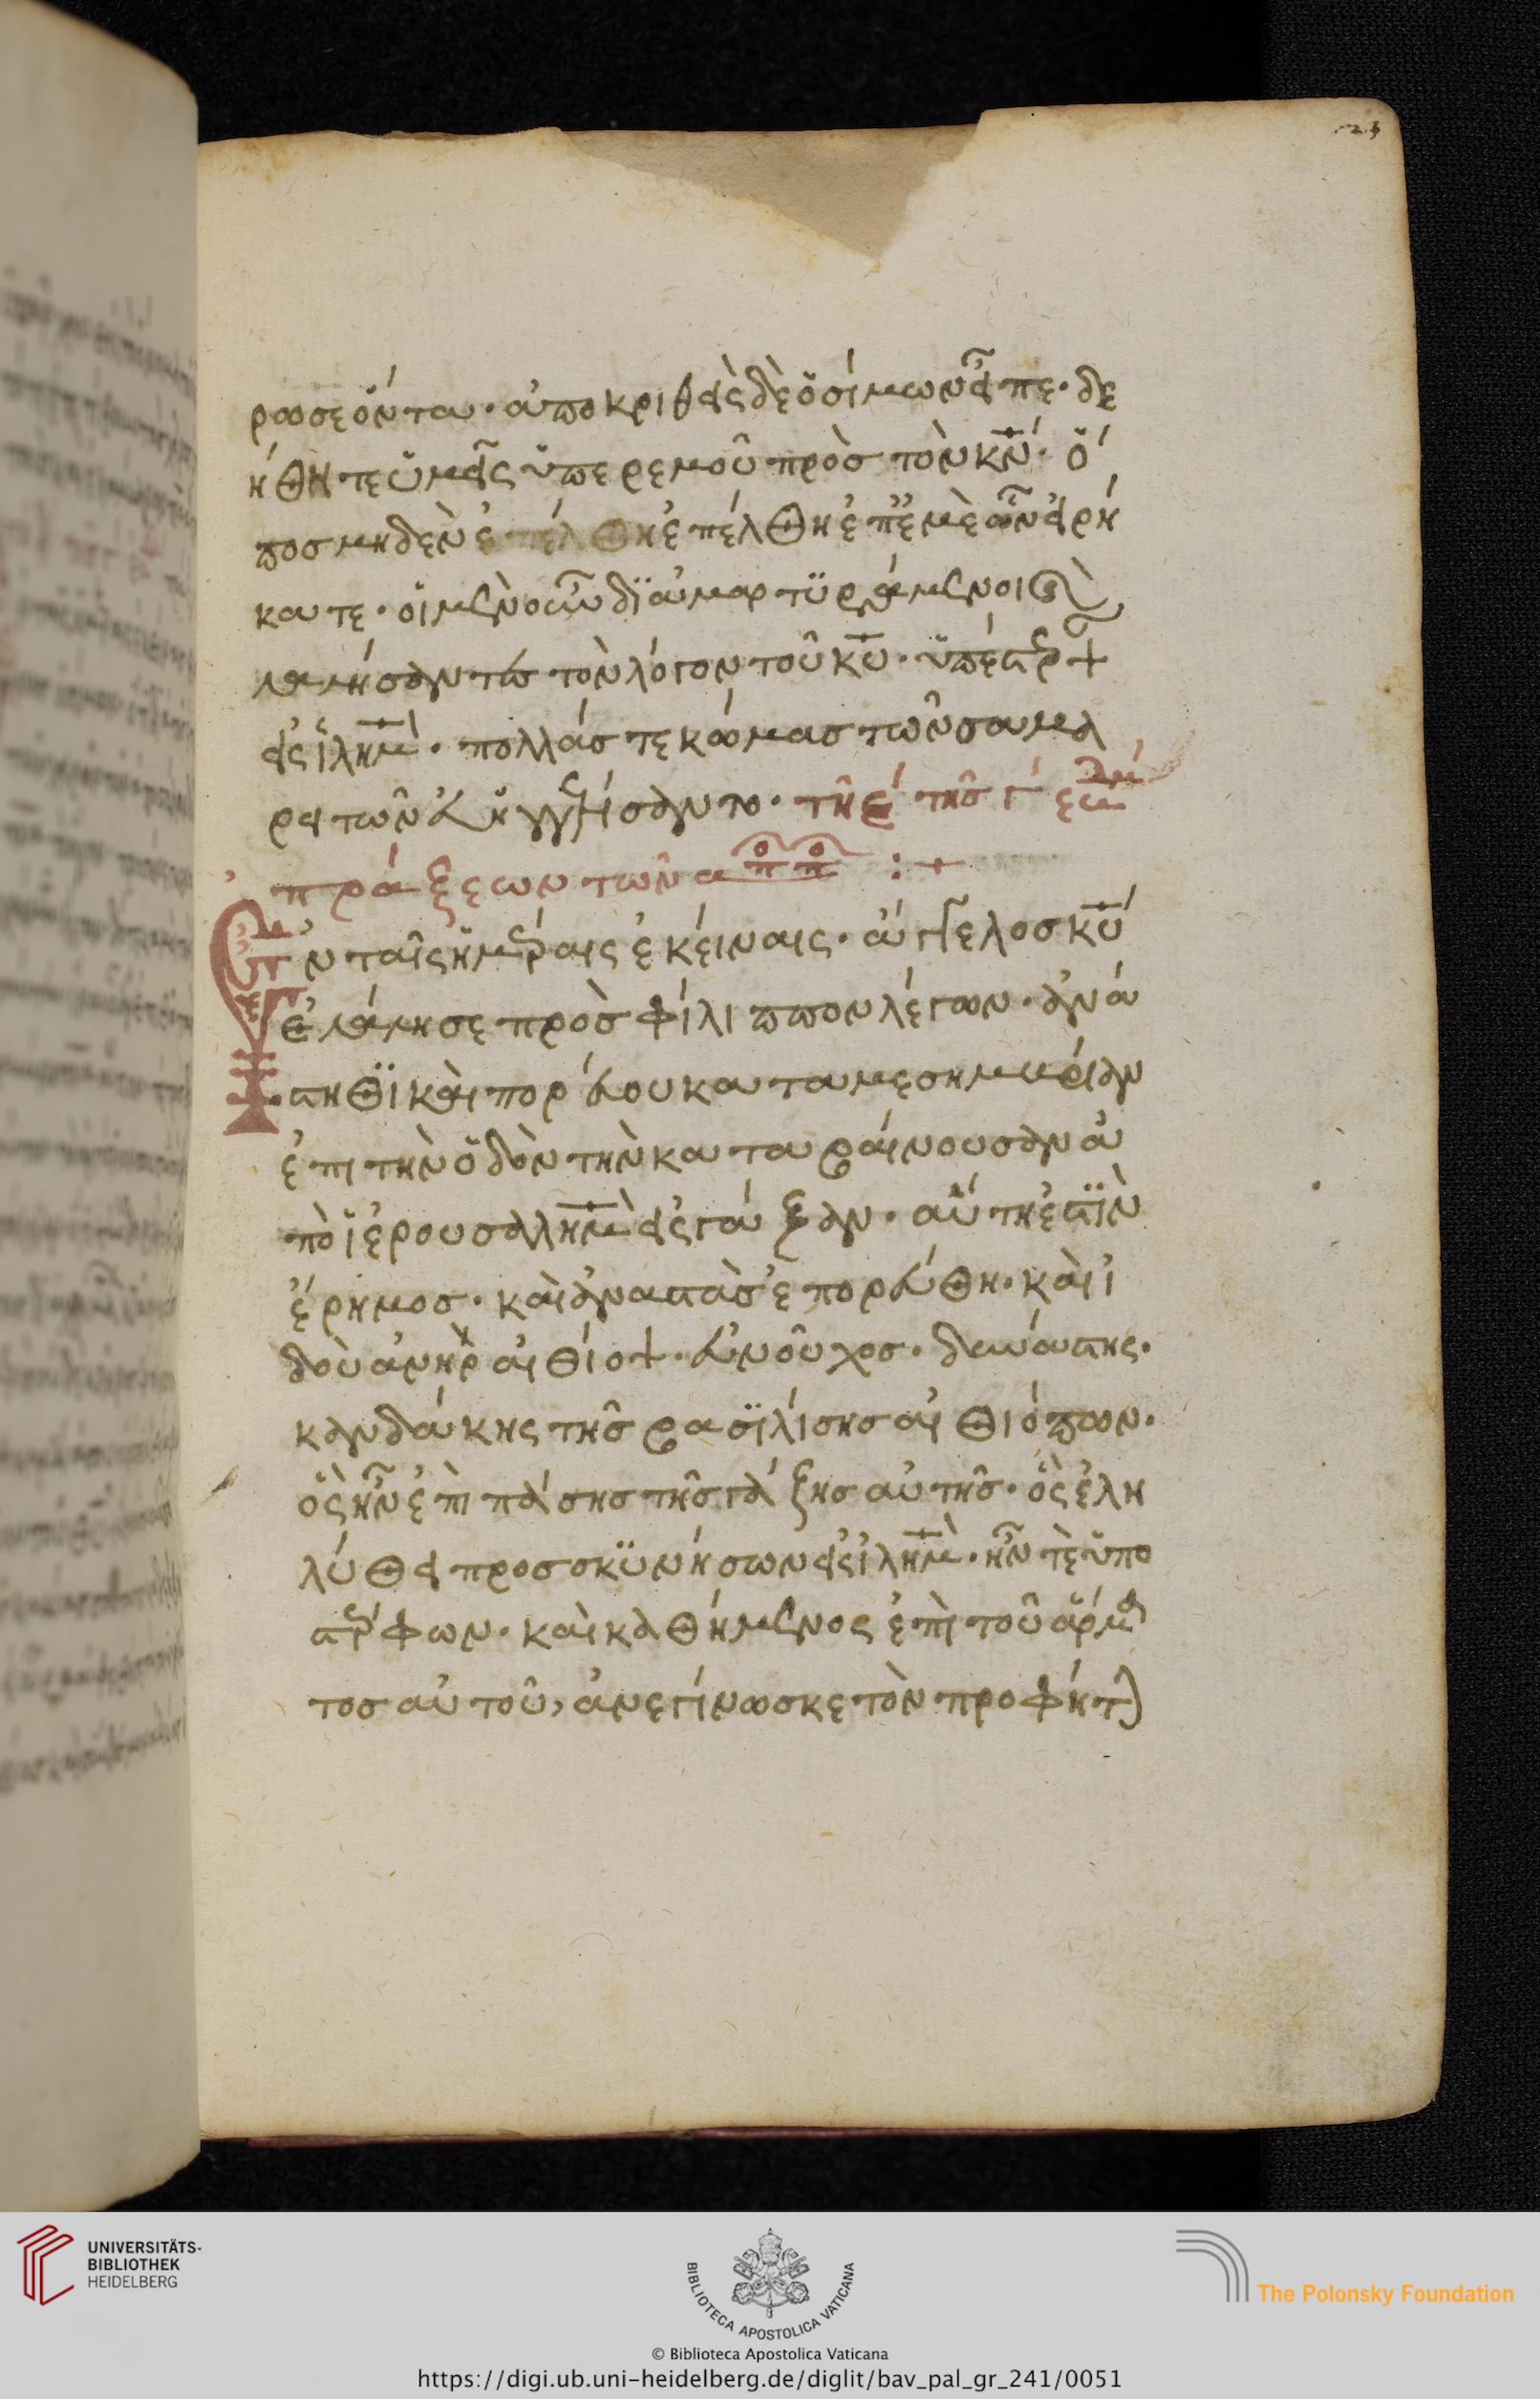 ρωσε ὄντα· ἀποκριθεὶς δὲ ὁ σίμων εἶπε· δε
ήθητε ὑμεῖς ὑπὲρ ἐμοῦ πρὸς τὸν κν̄· ὅ
πος μηδὲν ἐπέλθη ἐπέλθη ἐπ' ἐμὲ ὧν εἰρή
κατε· οἱ μὲν οὖν διαμαρτυράμενοι καὶ
λαλήσαντες τὸν λόγον τοῦ κῡ· ὑπέστρεψαν
εἰς ἱλημ̄· πολλάς τε κώμας τῶν σαμα
ρειτῶν εὐηγγελίσαντο· τῇ ε' τῆς γ' ἑβδ
πράξεων τῶν αποπο :+
Ἐν ταῖς ἡμέραις ἐκείναις· ἄγγελος κῡ
ἐλάλησε πρὸς φίλιππον λέγων· ἀνά
στηθι καὶ πορεύου κατα μεσημβρίαν
ἐπι τὴν ὁδὸν τὴν καταβαίνουσαν ἀ
πὸ ἱερουσαλημ̄ εἰς γάζαν· αὕτη ἐστὶν
ἔρημος· καὶ ἀναστὰς ἐπορεύθη· καὶ ἰ
δοὺ ἀνὴρ αἰθίοψ· εὐνοῦχος· δυνάστης·
κανδάκης τῆς βασιλίσης αἰθιόπων·
ὃς ἦν ἐπὶ πάσης τῆς γάζης αὐτῆς· ὃς ἐλη
λύθει προσσκυνήσων εἰς ἱλημ̄· ἦν τὲ ὑπο
στρέφων· καὶ καθήμενος ἐπὶ τοῦ ἅρμα
τος αὐτοῦ, ἀνεγίνωσκε τὸν προφήτην
UNIVERSITÄTS-
BIBLIOTHEK
HEIDELBERG
BIBLIOTECA APOSTOLICA VATICANA
The Polonsky Foundation
© Biblioteca Apostolica Vaticana
https://digi.ub.uni-heidelberg.de/diglit/bav_pal_gr_241/0051